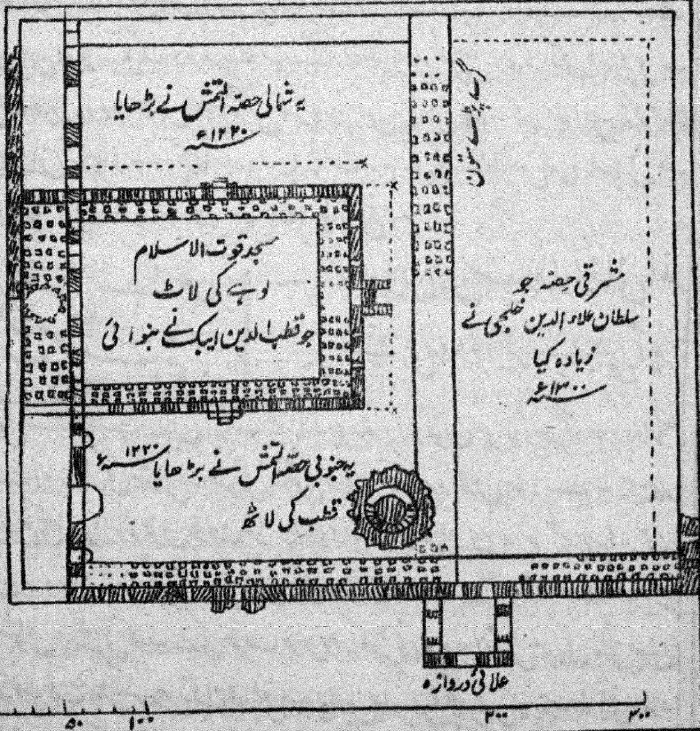 یہ شمالی حصہ التمش نے بڑھایا
۱۲۲۰ء
مسجد قوت الاسلام
لوہے کی لاٹ
جو قطب الدین ایبک نے بنوائی
مشرقی حصہ جو
سلطان علاءالدین خلجی نے
زیادہ کیا
۱۳۰۰ء
یہ جنوبی حصہ التمش نے بڑھایا ۱۲۲۰ء
قطب کی لاٹھ
علائی دروازہ
۵۰ ۱۰۰ ۲۰۰ ۳۰۰